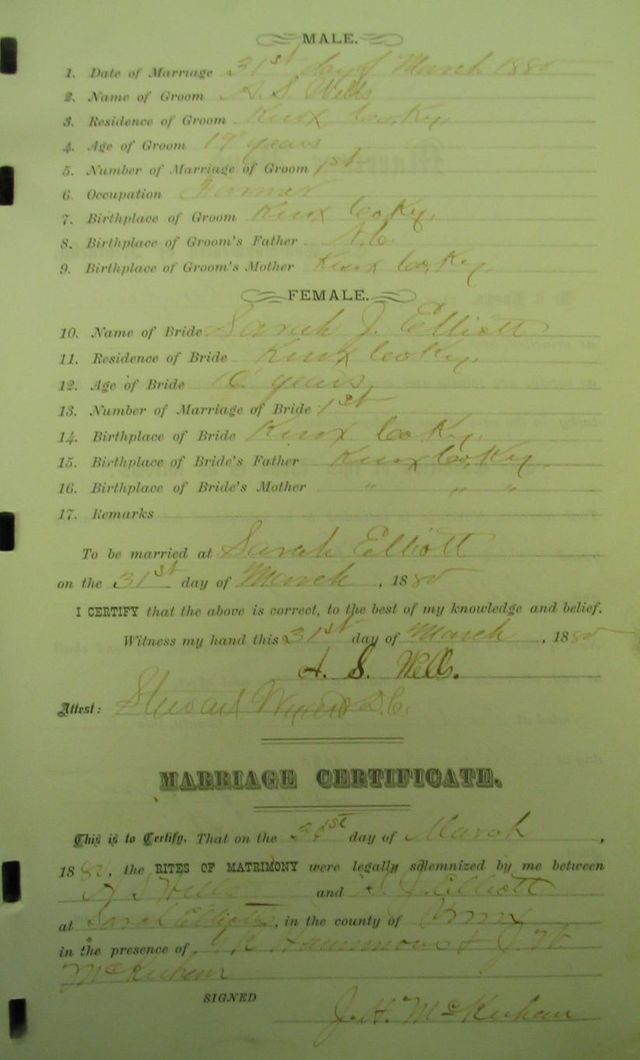 MALE.
1. Date of Marriage 31st day of March 1880
2. Name of Groom A. S. Wells
3. Residence of Groom Knox Co Ky,
4. Age of Groom 19 years
5. Number of Marriage of Groom 1st
6. Occupation Farmer
7. Birthplace of Groom Knox Co Ky,
8. Birthplace of Groom's Father N.C.
9. Birthplace of Groom's Mother Knox Co, Ky
FEMALE.
10. Name of Bride Sarah J. Elliott
11. Residence of Bride Knox Co Ky,
12. Age of Bride years
13. Number of Marriage of Bride 1st
14. Birthplace of Bride Knox Co Ky,
15. Birthplace of Bride's Father Knox Co, Ky
16. Birthplace of Bride's Mother " " "
17. Remarks
To be married at Sarah Elliott
on the 31st day of March, 1880
I CERTIFY that the above is correct, to the best of my knowledge and belief.
Witness my hand this 31st day of March, 1880
A. S. Wells.
Attest: Stewart D.C.
MARRIAGE CERTIFICATE.
This is to Certify, That on the 31st day of March,
1880, the RITES OF MATRIMONY were legally solemnized by me between
A S Wells and S. J. Elliott
at Sarah Elliotts, in the county of Knox
in the presence of Hammons & J. W
McKeehan
SIGNED
J. H. McKeehan